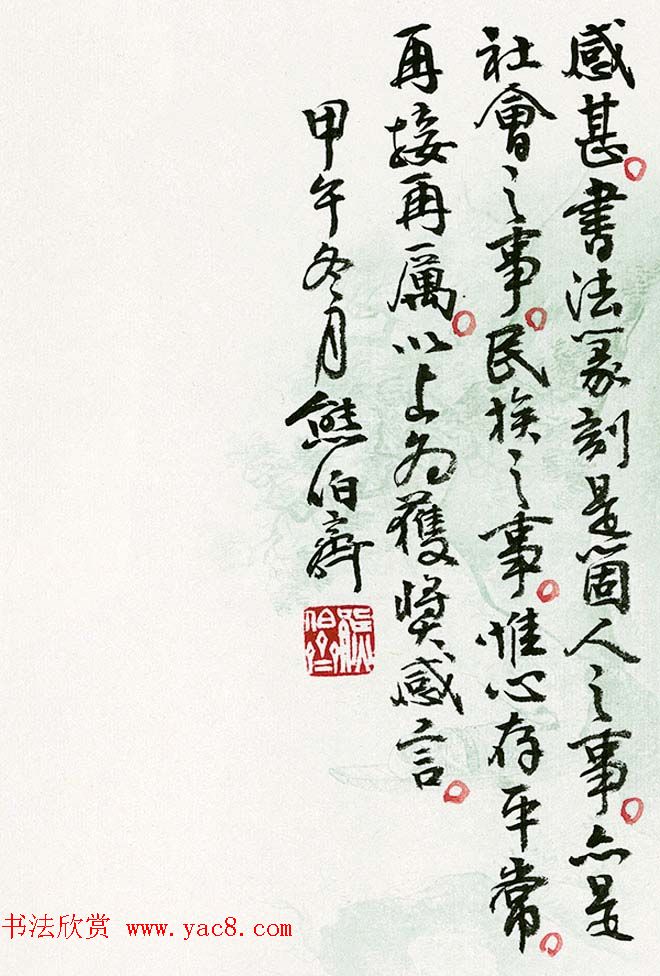 感甚。書法篆刻是箇人之事。亦是
社會之事。民族之事。惟心存平常。
再接再厲。以上為獲獎感言。
甲午冬月熊伯齊
书法欣赏 www.yac8.com